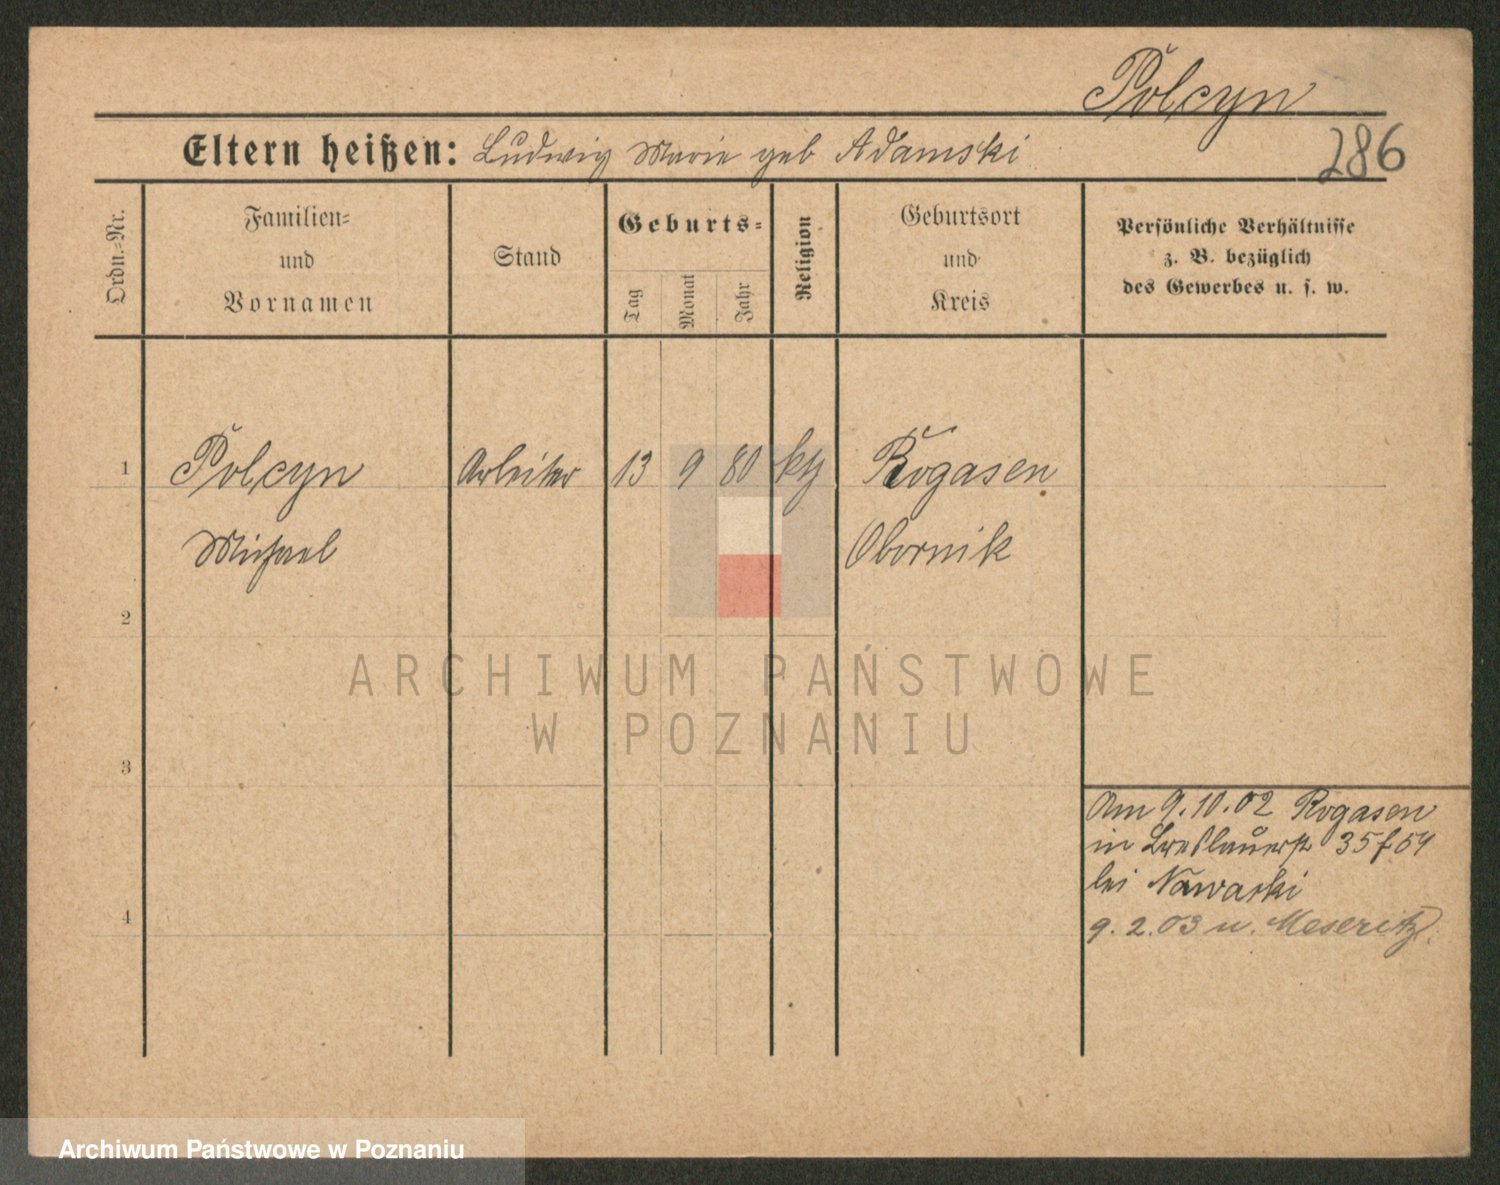 Polcyn
Eltern heißen: Ludwig Marie geb Adamski
286
Ordn.=Nr.
Familien=
und
Vornamen
Stand
Geburts=
Tag
Monat
Jahr
Religion
Geburtsort
und
Kreis
Persönliche Verhältnisse
z. B. bezüglich
des Gewerbes u. s. w.
1 Polcyn Arbeiter 13 9 80 kth Rogasen
Michael Obornik
2
ARCHIWUM PAŃSTWOWE
W POZNANIU
3
Am 9.10.02 Rogasen
in Breslauerst 35
bei Nawaski
4
9.2.03 n. Meseritz.
Archiwum Państwowe w Poznaniu